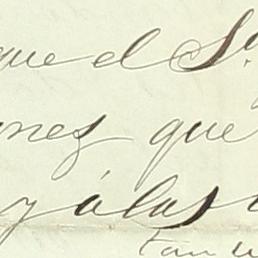 que el Sr.
nes que
y á las
tan